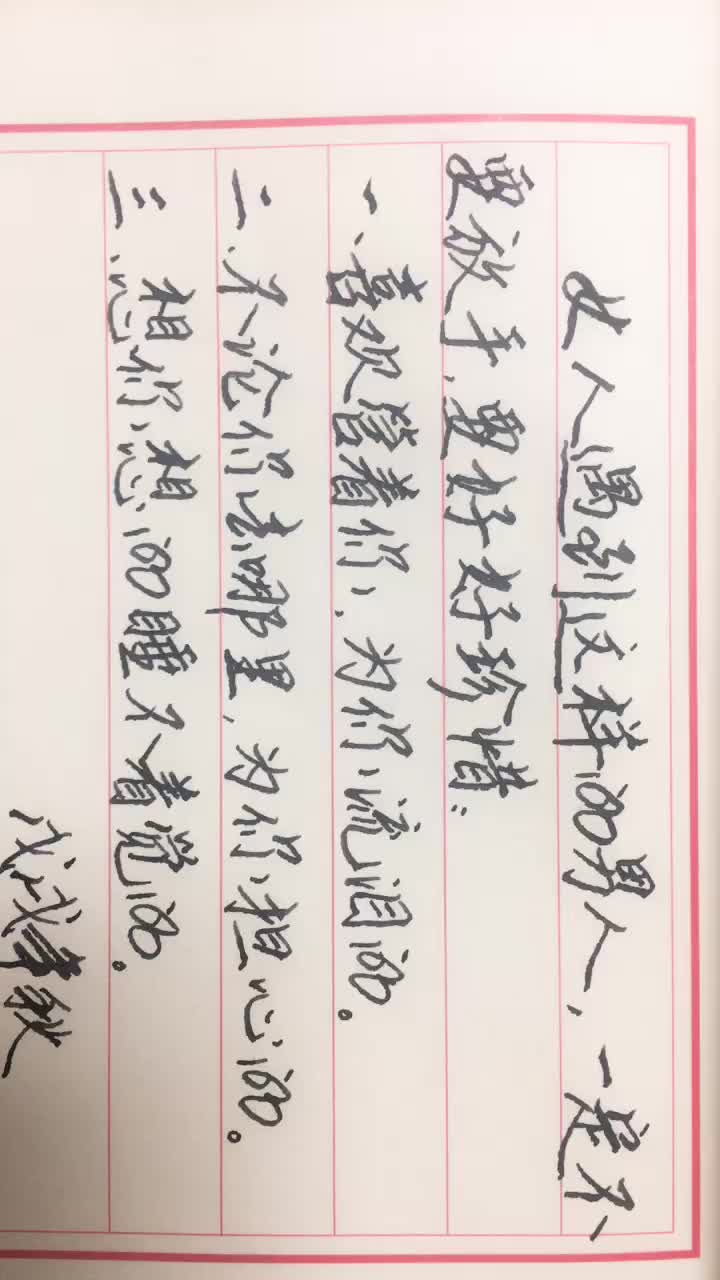 女人遇到这样的男人，一定不
要放手，要好好珍惜：
一、喜欢管着你，为你流泪的。
二、不论你去哪里，为你担心的。
三、想你想的睡不着觉的。
戊戌年秋